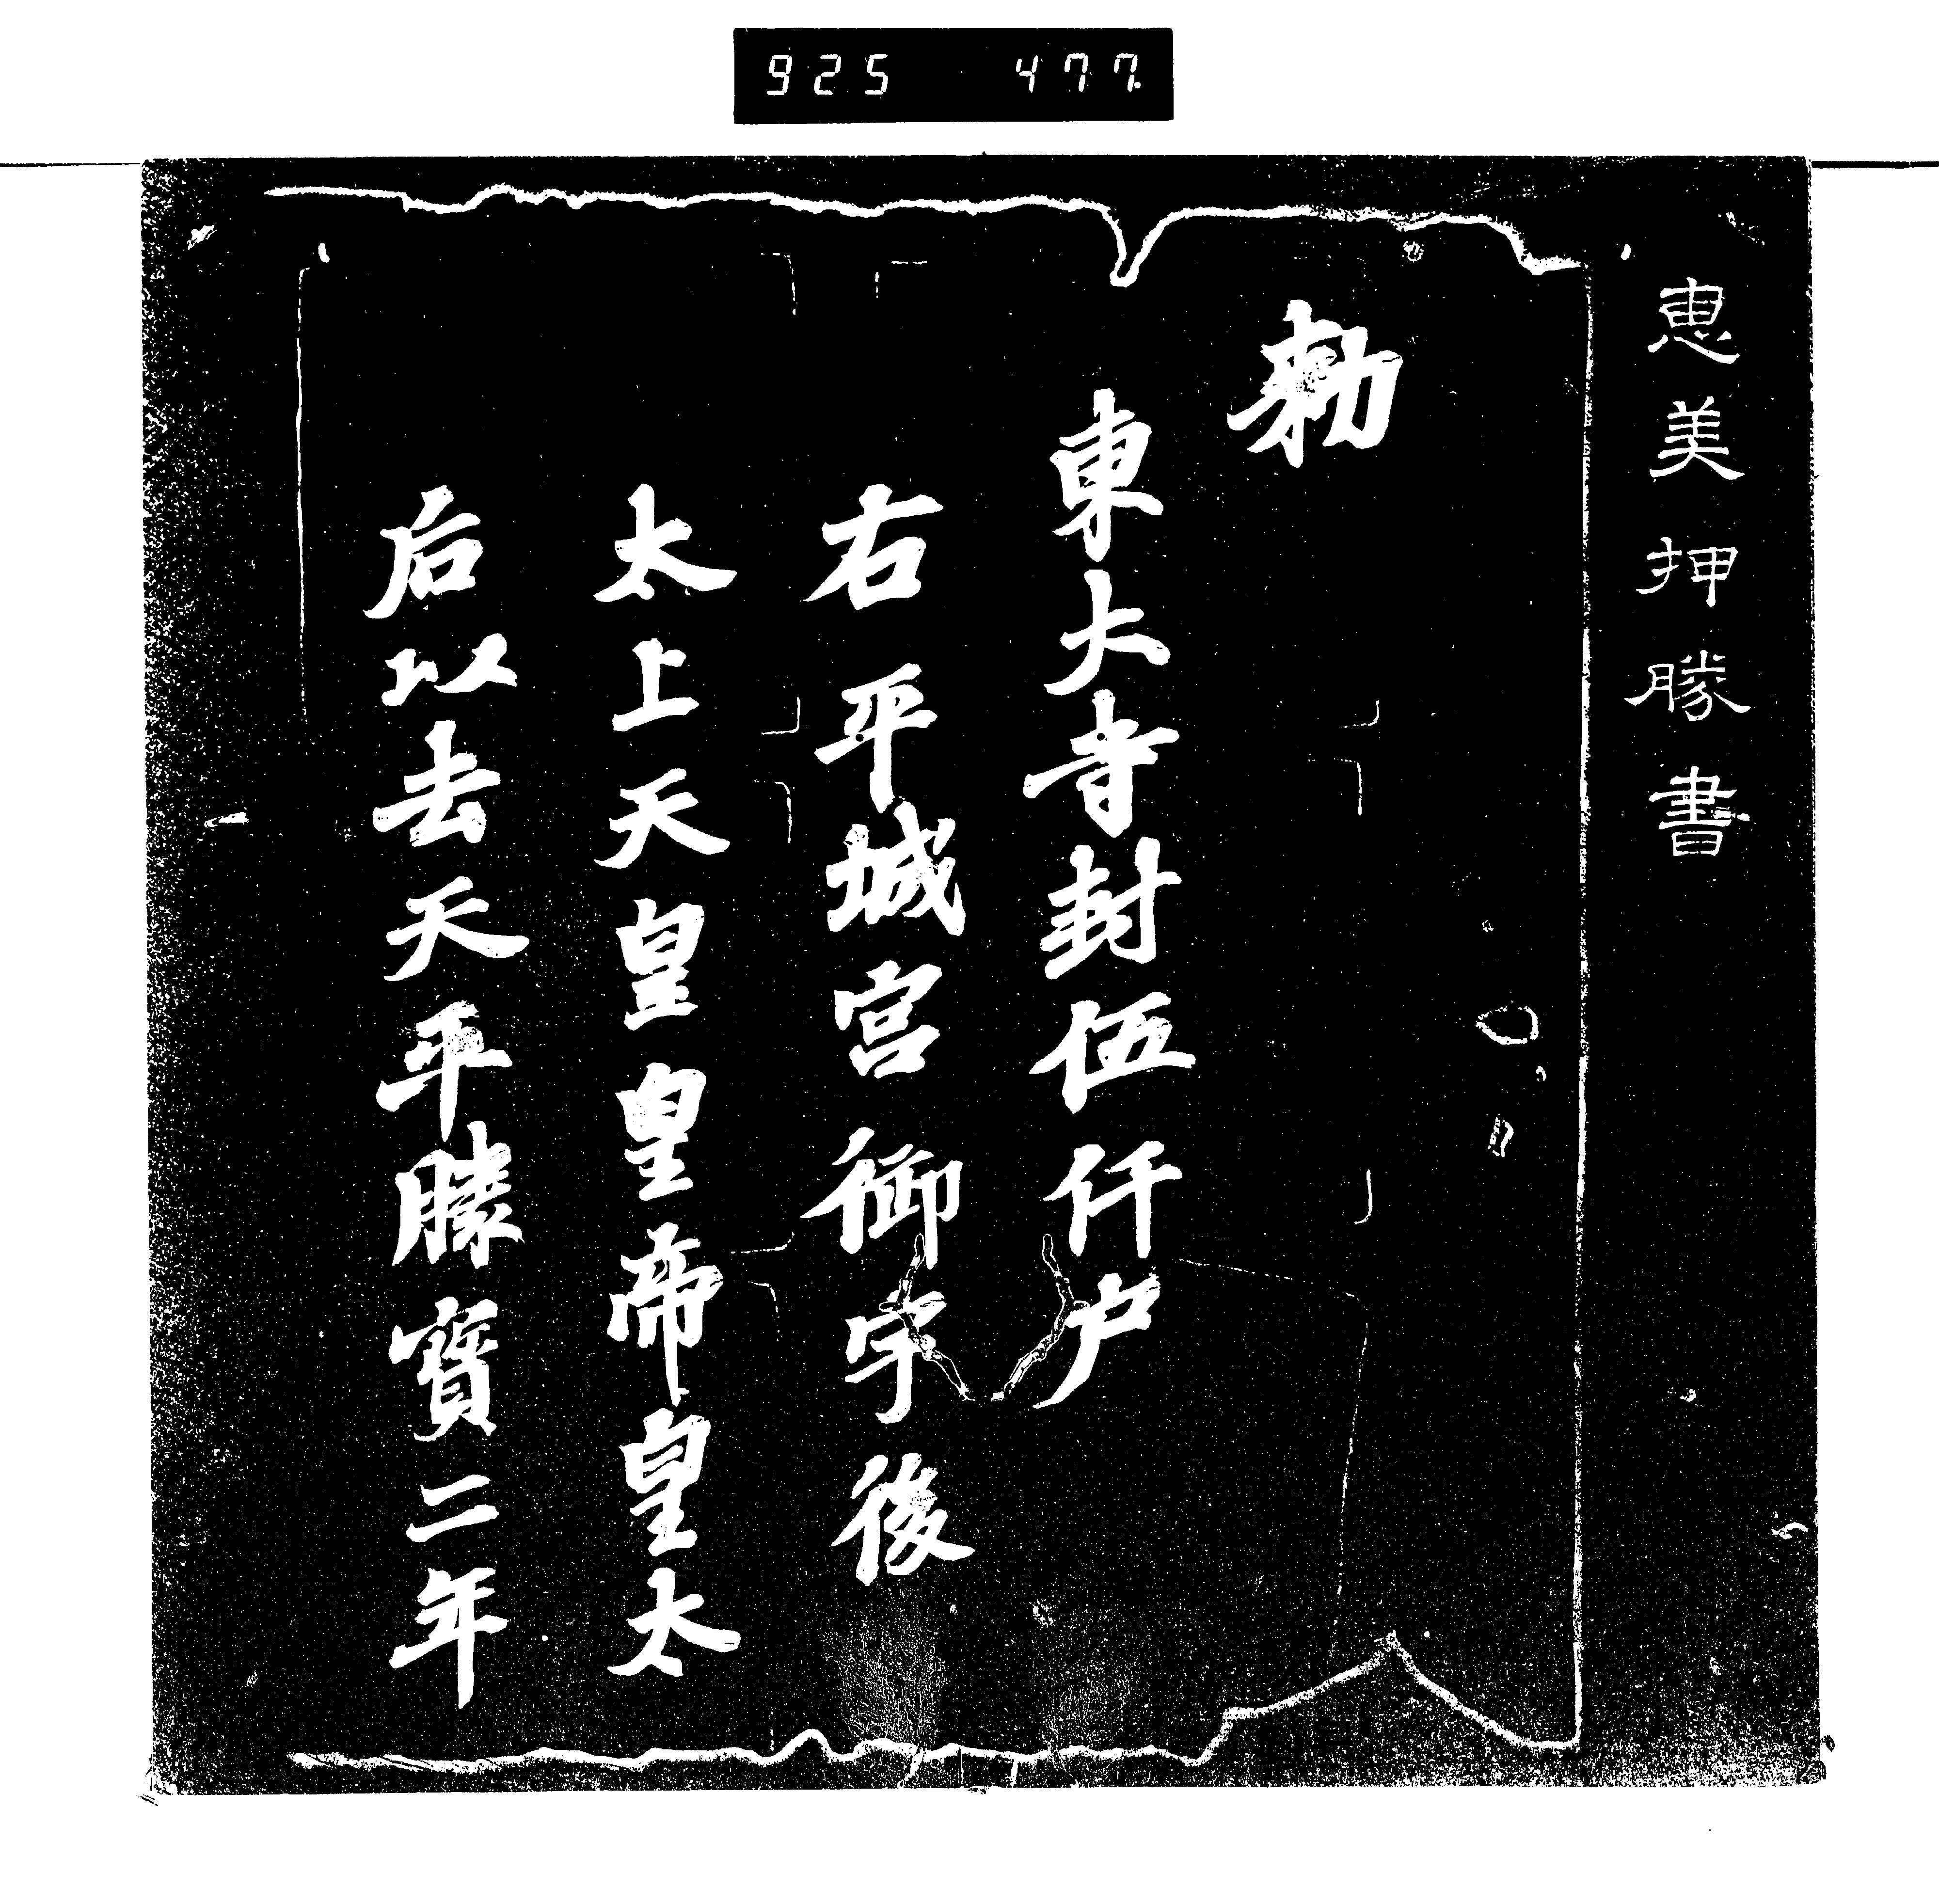 925 477.
恵美押勝書
勅
東大寺封伍仟戸
右平城宮御宇後
太上天皇皇帝皇太
后以去天平勝寳二年